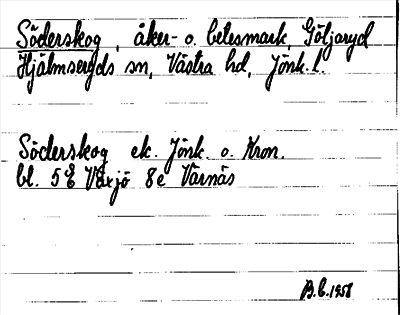 Söderskog, åker- o. betesmark, Göljaryd
Hjälmseryds sn, Västra hd, Jönk. l.
Söderskog ek. Jönk. o. Kron.
bl. 5 E Växjö 8e Värnäs
B.E. 1958